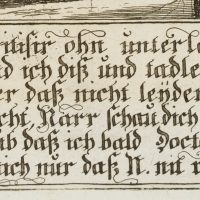 ohn unterl
ich diß und tadle
er daß nicht leyden
cht Närr schau dich
ub daß ich bald Doct
nich nur daß N. nit